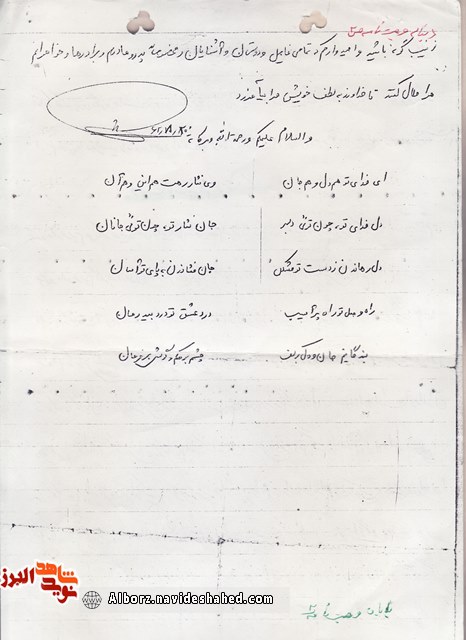 زینب گونه باشید و امیدوارم که تمامی فامیل و دوستان و آشنایان و همسایه پدر و مادرم و برادرها و خواهرانم
مرا حلال کنند تا خداوند به لطف خویش مرا بیامرزد
والسلام علیکم و رحمة الله و برکاته
ای فدای تو هم دل و هم جان
وی نثار رهت هم این و هم آن
دل فدای تو، چون توئی دلبر
جان نثار تو، چون توئی جانان
دل رهاندن ز دست تو مشکل
جان فشاندن به پای تو آسان
راه وصل تو راه پر آسیب
درد عشق تو درد بی درمان
بندگانیم جان و دل بر کف
چشم بر حکم و گوش بر فرمان
نوید شاهد البرز
Alborz.navideshahed.com
پایان وصیت نامه